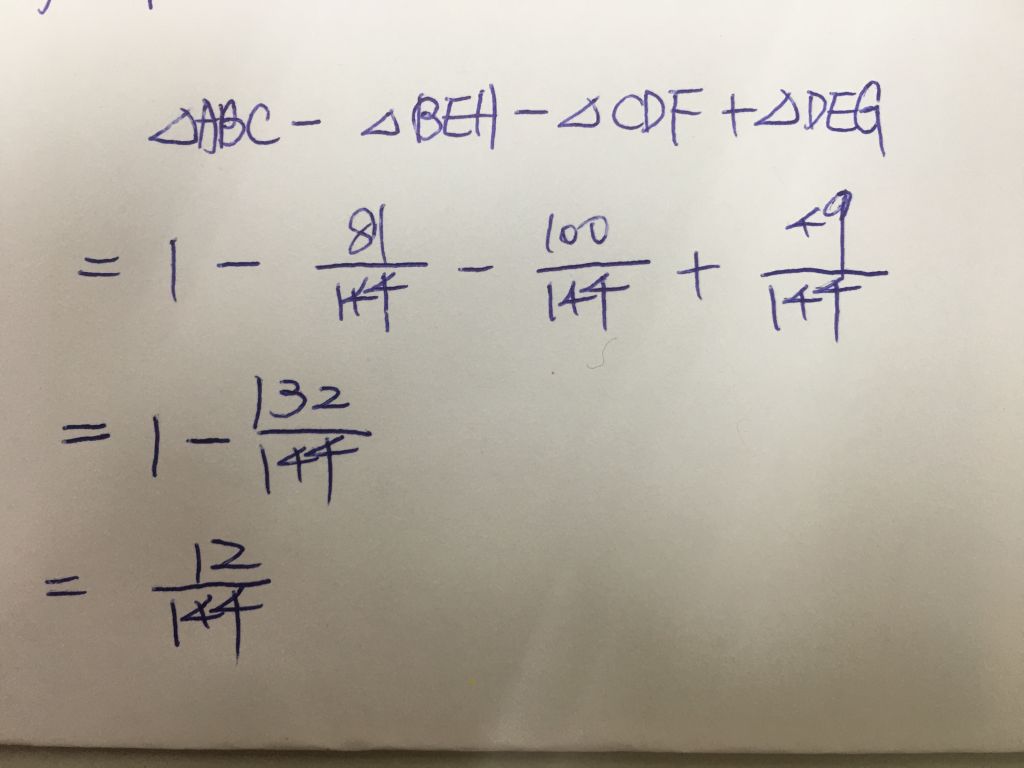 △ABC - △BEH - △CDF + △DEG
= 1 - 81/144 - 100/144 + 49/144
= 1 - 132/144
= 12/144